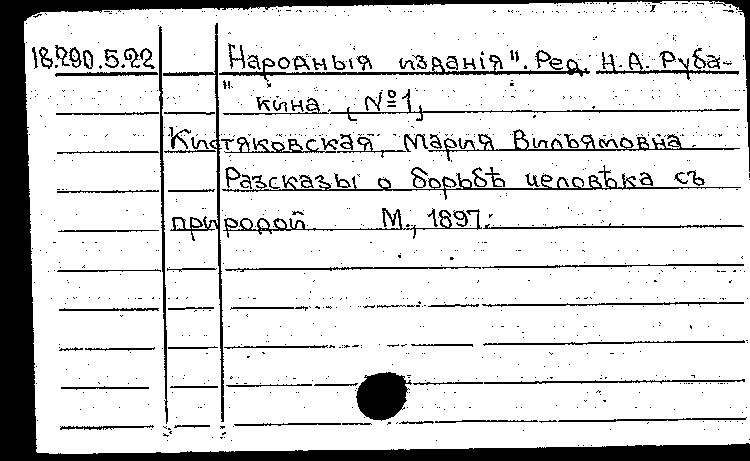 18.290.5.22 „Народныя изданія". Ред. Н.А. Руба-
кина. [№1]
Кистяковская, Мария Вильямовна.
Разсказы о борьбѣ человѣка съ
природой. М., 1897.